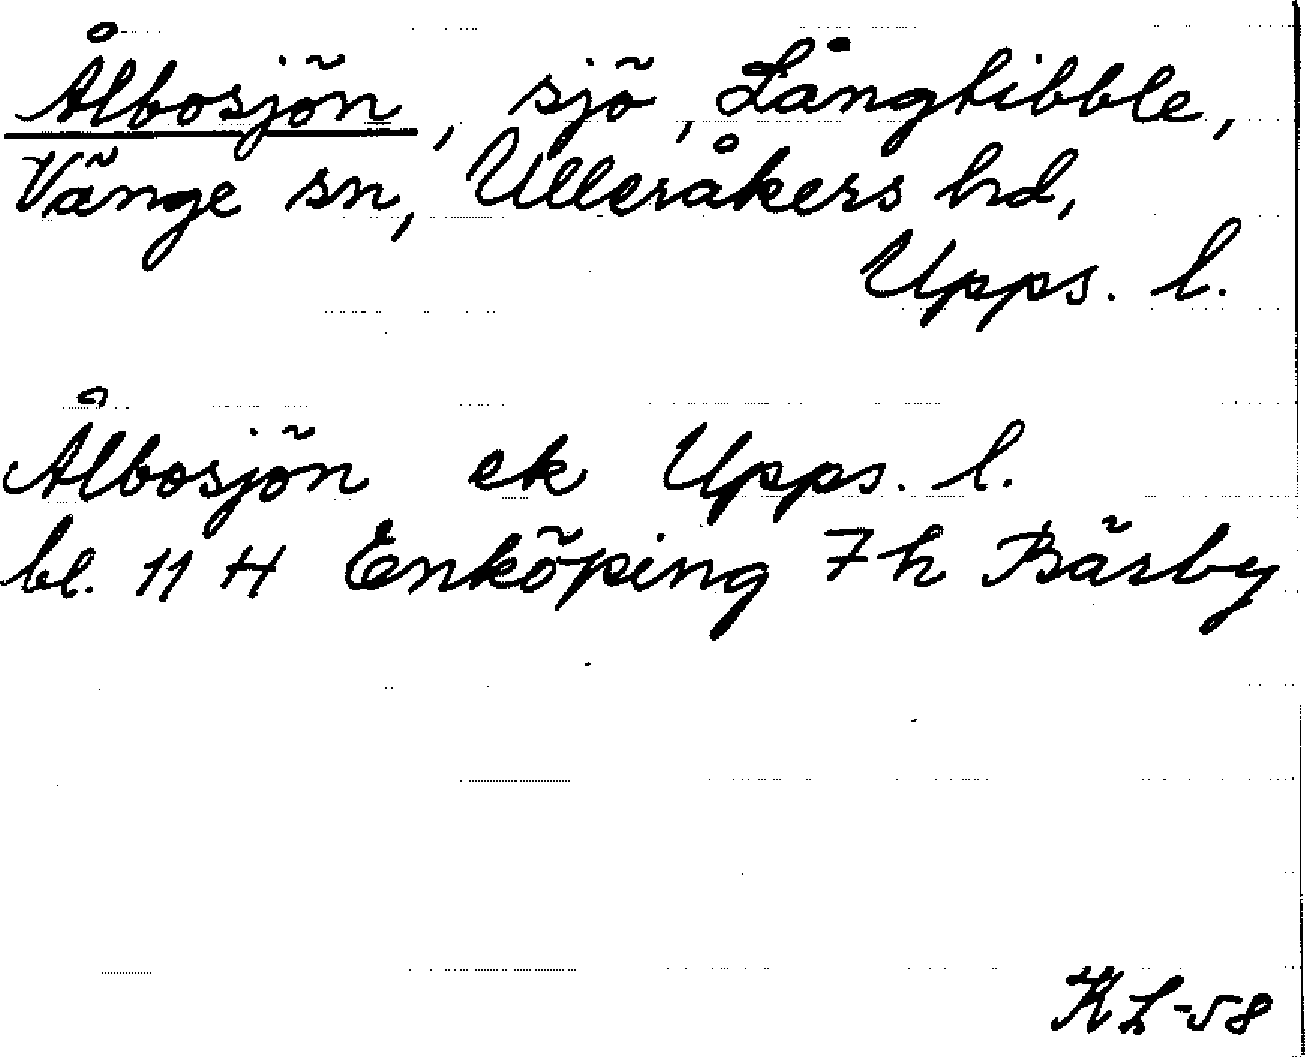 Ålbosjön, sjö, Långtibble,
Vänge sn, Ulleråkers hd,
Upps. l.
Ålbosjön ek Upps. l.
bl. 11 H Enköping 7 h Bärby
KL-58